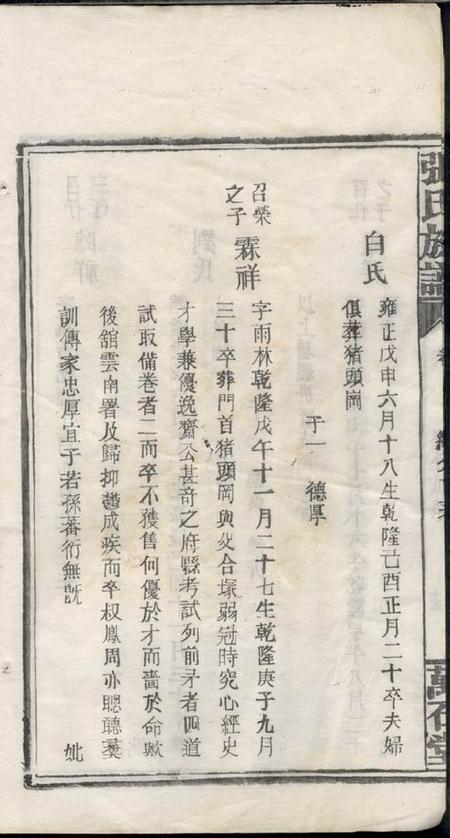 張氏族譜
萬石堂
白氏
雍正戊申六月十八生乾隆己酉正月二十卒夫婦
俱葬猪頭崗
子一 德厚
召榮之子 霖祥
字雨林乾隆戊午十一月二十七生乾隆庚子九月
三十卒葬門首猪頭岡與父合塚弱冠時究心經史
才學兼優逸齋公甚奇之府縣考試列前矛者四道
試取備卷者二而卒不獲售何優於才而嗇於命歟
後舘雲南署及歸抑鬱成疾而卒权鳳周亦聰聽彝
訓傳家忠厚宜于若孫蕃衍無旣
妣